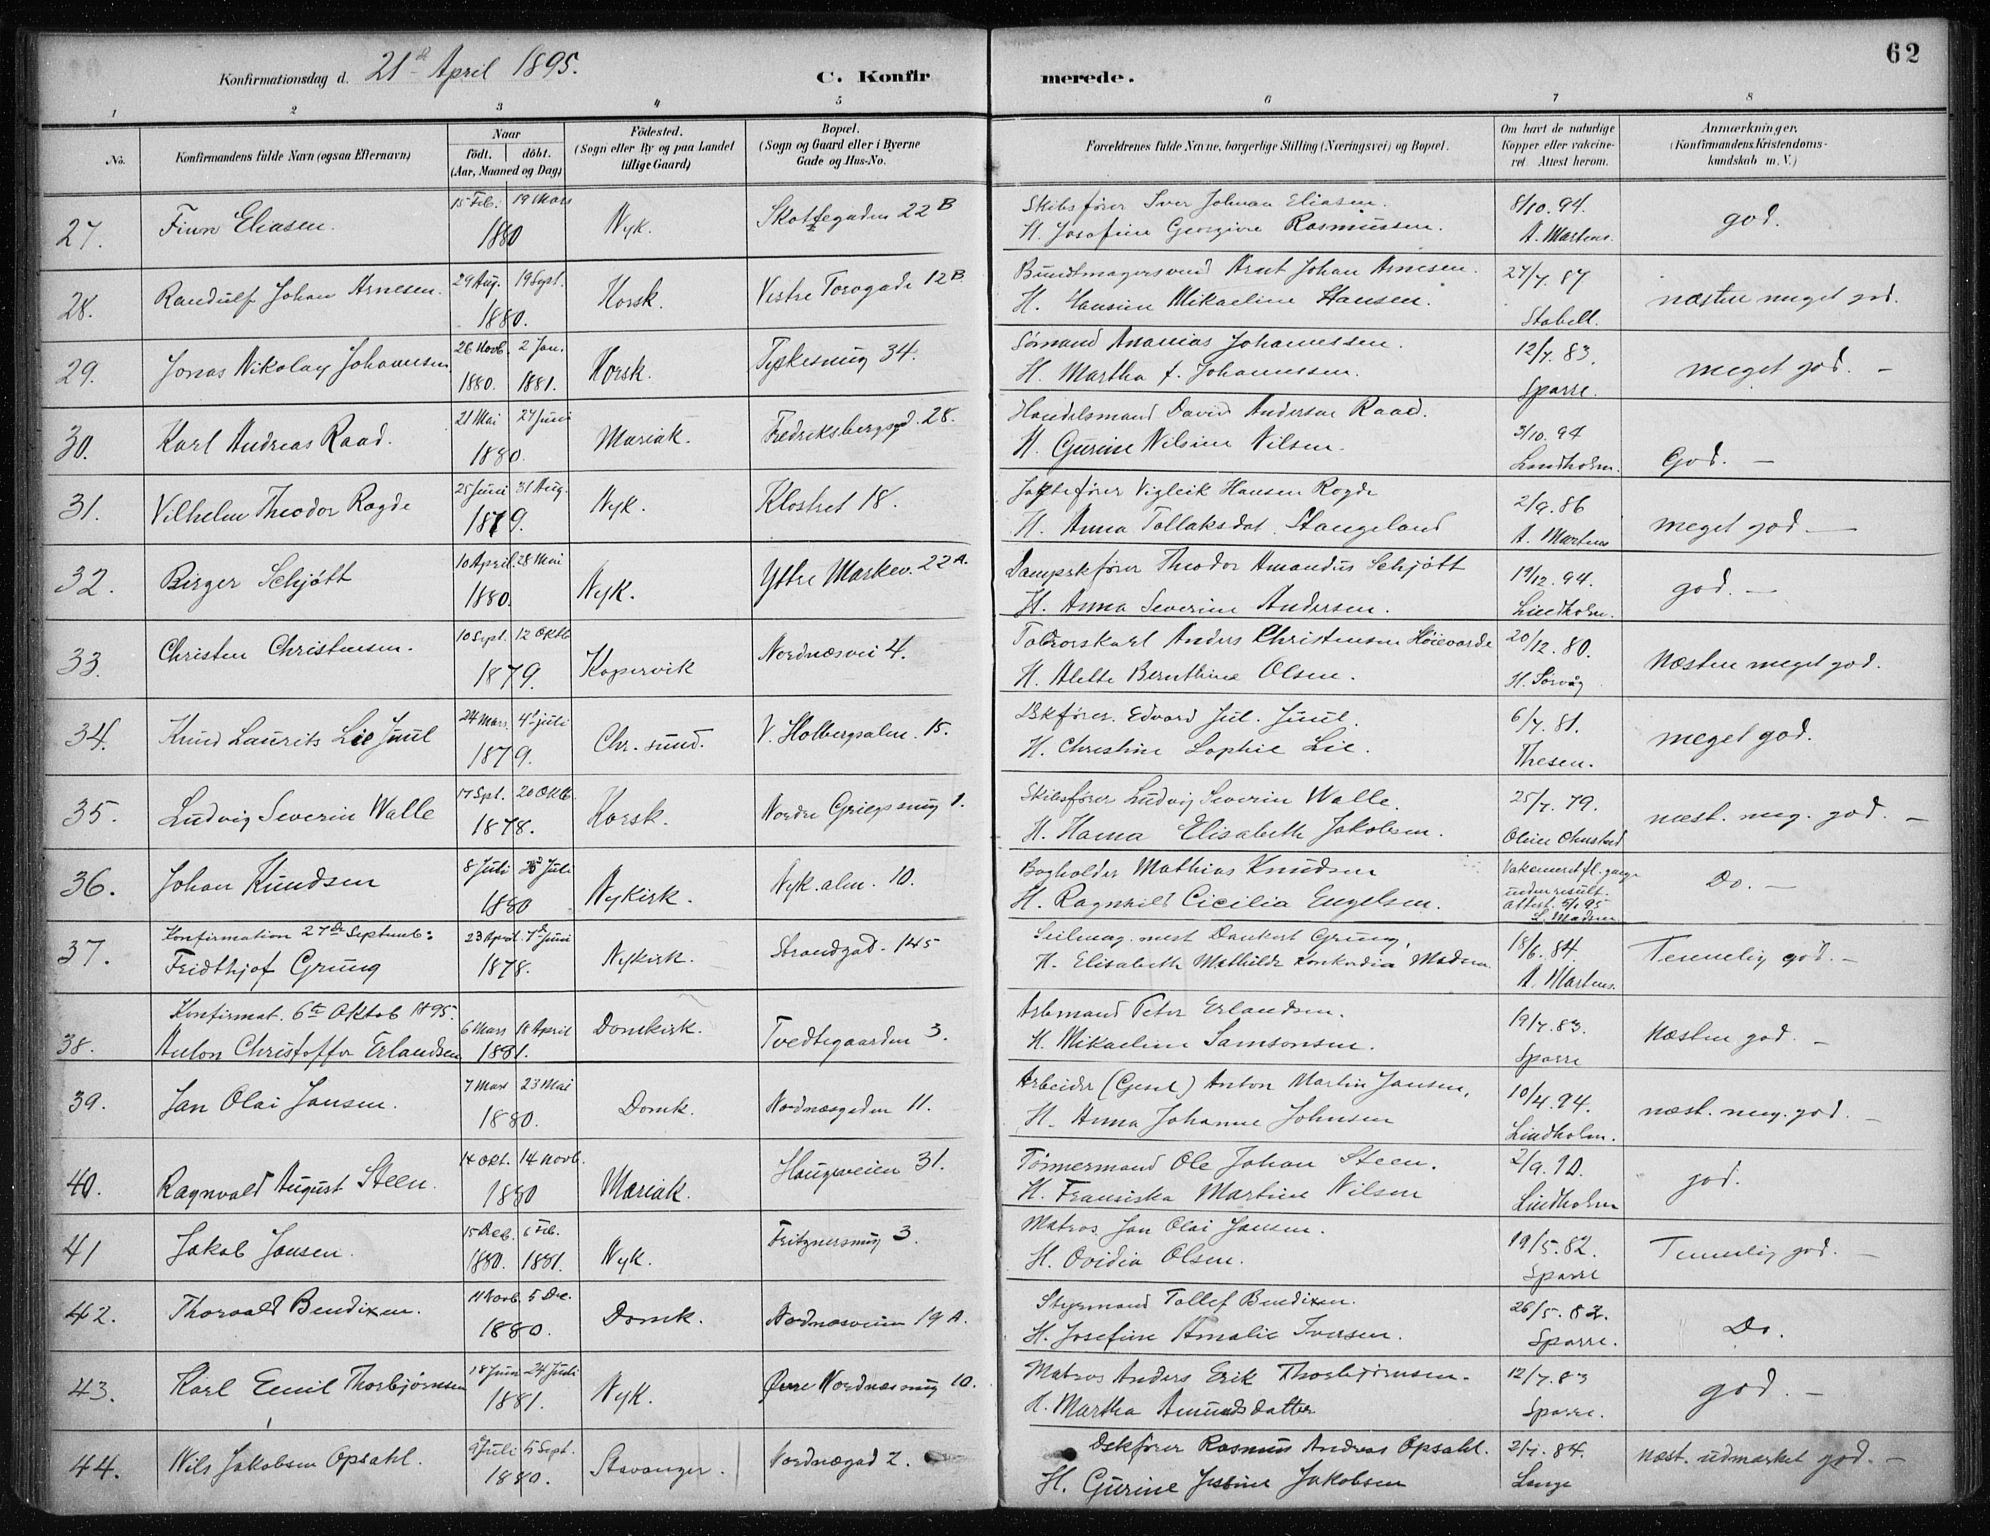 62
Konfirmationsdag d. 21d April 1895. C. Konfir merede.
1 2 3 4 5 6 7 8
No.
Konfirmandens fulde Navn (ogsaa Efternavn)
Naar
födt. döbt.
(Aar, Maaned og Dag)
Födested.
(Sogn eller By og paa Landet
tillige Gaard)
Bopæl.
(Sogn og Gaard eller i Byerne
Gade og Hus-No.
Forældrenes fulde Navne, borgerlige Stilling (Næringsvei) og Bopæl.
Om havt de naturlige
Kopper eller vakcine-
ret. Attest herom.
Anmærkninger.
(Konfirmandens Kristendoms-
kundskab m. V.)
27. Finn Eliasen. 15 Feb. 19 Mars 1880 Nyk. Skottegaden 22 B
Skibsfører Iver Johnan Eliasen. 8/10. 94. god.
H. Josefine Georgine Rasmussen. A. Martens.
28. Randulf Johan Arnesen. 29 Aug. 19 Sept. 1880. Korsk. Vestre Torvgade 12 B
Bundtmagersvend Arnt Johan Arnesen. 27/7. 87 næsten meget god.
H. Hansine Mikaeline Hansen. Stabell.
29. Jonas Nikolay Johannesen 26 Novb. 2 Jan. 1880. 1881. Korsk. Tyskesmug 34.
Sømand Ananias Johannessen. 12/7. 83. meget god. -
H. Martha f. Johannessen. Sparre.
30. Karl Andreas Raad. 21 Mai 27 Juni 1880. Mariak. Fredriksbergsgd. 28.
Handelsmand David Anderson Raad. 3/10. 94 God. -
H. Gurine Nilsine Nilsen. Lindholm.
31. Vilhelm Theodor Rogde 25 Juni 31 Aug. 1879. Nyk. Klostret 18.
Jagtefører Vigleik Hansen Rogde 2/9. 86 meget god. -
H. Anna Tollaksdat. Stangeland A. Martens
32. Birger Schjött 10 April. 28 Mai 1880. Nyk. Yttre Markev. 22 A.
Dampskfører Theodor Amandus Schjött 19/12. 94. god. -
H. Anna Severine Andersen. Lindholm.
33. Christen Christensen. 10 Sept. 12 Oktb 1879. Kopervik Nordnæsvei 4.
Anders Christensen Høievarde 20/12. 80. Næsten meget god.
H. Alette Bernthine Olsen. H. Sørvåg
34. Knud Laurits Lie Juul 24 Mars. 4d juli 1879. Chr. sund. V. Holbergsalm. 15.
Dskfører. Edvard Jul. Juul. 6/7. 81. meget god.
H. Christine Sophie Lie. Thesen.
35. Ludvig Severin Walle 17 Spt. 20 Oktb. 1878. Korsk. Nordre Griegssmug 1.
Skibsfører Ludvig Severin Walle. 25/7. 79. næst. meg. god. -
H. Hanna Elisabeth Jakobsen.
36. Johan Knudsen 8 Juli 1880 Nykirk. Nyk. alm. 10.
Bogholder Mathias Knudsen Do. -
H. Ragnhild Cicilia Engelsen. uden result. attest. 5/1 95 S. Madsen
37. Konfirmation 27de Septemb:
Fridthjof Grung 23 April 7d Juni 1878. Nykirk. Strandgad. 145
Seilmag. mest Dankert Grung, 18/6. 84. Temmelig god. -
H. Elisabeth Mathilde Konkordia Madsen. A. Martens.
38. Konfirmat. 6te Oktob 1895.
Anton Christoffer Erlandsen 6 Mars 18 April 1881. Domkirk. Tvedtegaarden 3.
Arbmand Peter Erlandsen. 19/7. 83. Næsten god. -
H. Mikaeline Samsonsen. Sparre
39. Jan Olai Jansen. 7 Mars 23 Mai 1880. Domk. Nordnæsgaden 11.
Arbeider (Gasv.) Anton Martin Jansen, 10/4. 94. næst. meg. god. -
H. Anna Johanne Johnsen Lindholm.
40. Ragnvald August Steen. 14 Okt. 14 Novb. 1880 Mariak. Haugeveien 31.
Tømmermand Ole Johan Steen. 2/9. 90. god.
H. Fransiska Martine Nilsen Lindholm
41 Jakob Jansen. 15 Deb. 6 Feb. 1880. 1881. Nyk. Fritznersmug 3.
Matros Jan Olai Jansen. 19/5. 82. Temmelig god. -
H. Ovidia Olsen. Sparre
42. Thorvald Bendixen. 11 Novb. 5 Dec. 1880. Domk. Nordnæsveien 19 A.
Styrmand Tollef Bendixen. 26/5. 82. Do.
H. Josefine Amalie Iversen. Sparre.
43. Karl Emil Thorbjørnsen 18 Juni 24 Juli 1881. Nyk. Øvre Nordnæssmug 10.
Matros Anders Erik Thorbjørnsen. 12/7. 83 god. -
H. Martha Amundsdatter Sparre.
44. Nils Jakobsen Opsahl. 9 Juli 5 Sept. 1880. Stavanger. Nordnægad 2.
Dskfører Rasmus Andreas Opsahl. 2/7. 84. Næst. udmærket god. -
H. Gurine Jesine Jakobsen Lange